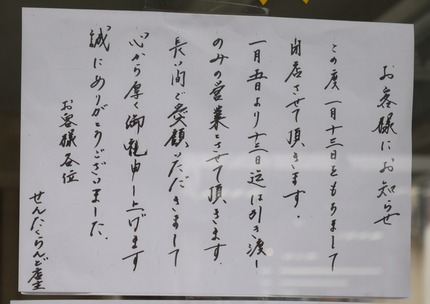 お客様にお知らせ
この度一月十三日をもちまして
閉店させて頂きます。
一月五日より十三日迄は引き渡し
のみの営業とさせて頂きます。
長い間ご愛顧いただきまして
心から厚く御礼申し上げます
誠にありがとうございました。
お客様各位
せんたくらんど屋